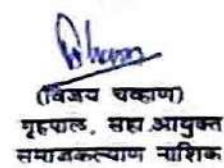 (विजय चव्हाण)
गृहपाल, सहा आयुक्त
समाजकल्याण नाशिक